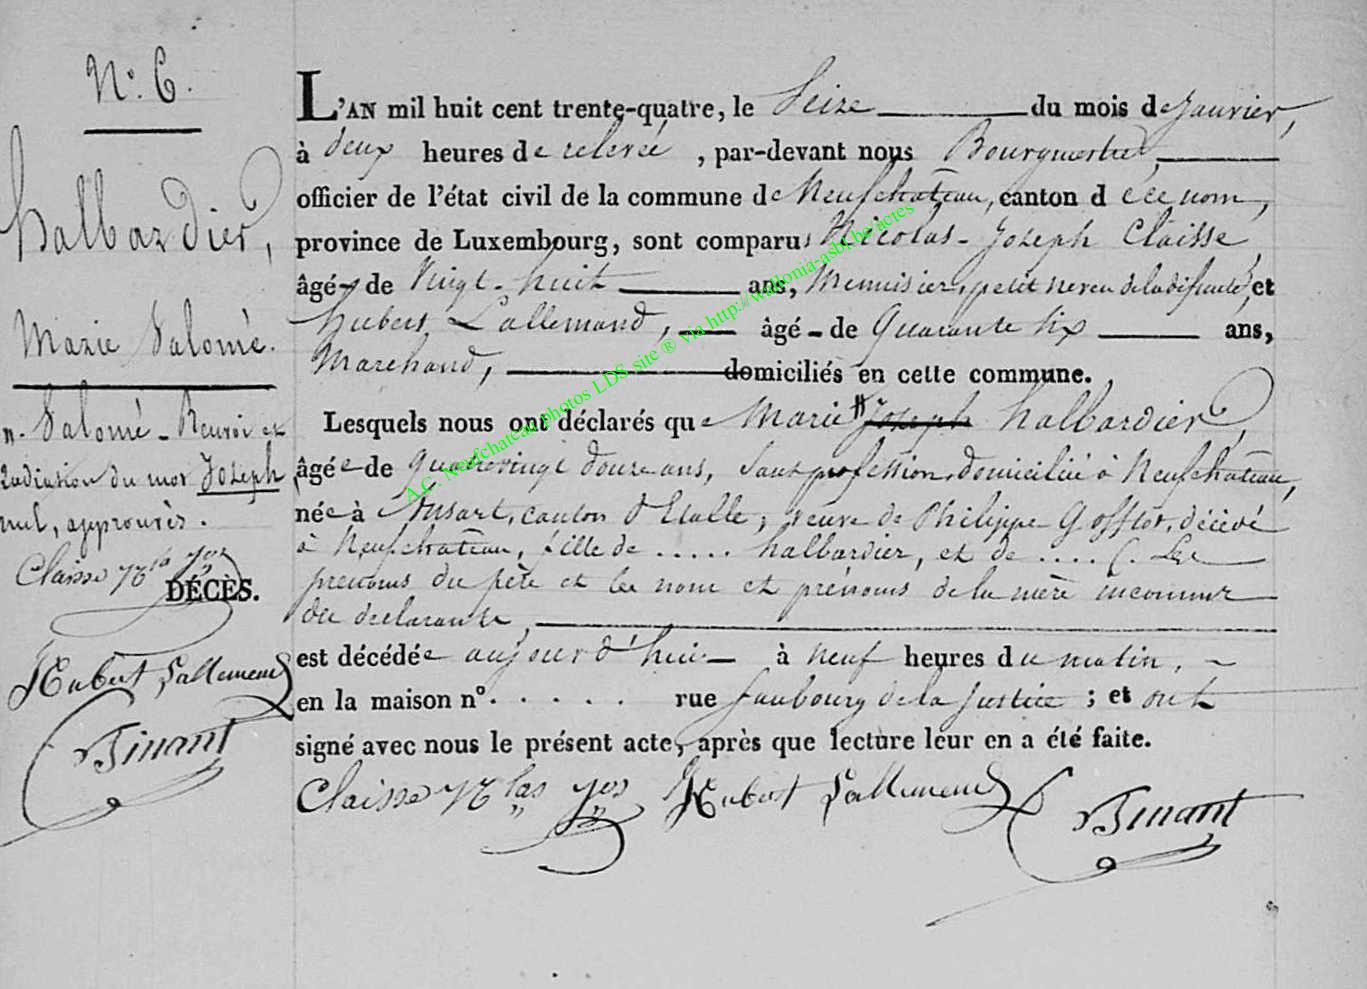 N.° 6.
halbardier,
Marie Salomé.
n. Salomé - Renvoi et
radiation du mot Joseph
nul, approuvés.
Claisse N las Jos
DÉCÈS.
Hubert Lallemend
Tinant
L'AN mil huit cent trente-quatre, le Seize du mois de Janvier,
à deux heures de relevée, par-devant nous Bourgmestre,
officier de l'état civil de la commune de Neufchateau, canton d de ce nom,
province de Luxembourg, sont comparus Nicolas-Joseph Claisse
âgé de Vingt-huit ans, Menuisier, petit neveu de la défunte, et
hubert Lallemand, âgé de Quarante six ans,
Marchand, domiciliés en cette commune.
Lesquels nous ont déclarés que Marie " Joseph halbardier,
âgée de quatrevingt douze ans, Sans profession, domiciliée à Neufchateau,
née à Ansart, canton d'Etalle, veuve de Philippe Gofflot, décédé
à Neufchateau, fille de ..... halbardier, et de .... (. Les
prenoms du père et les nom et prénoms de la mère inconnus
du declarante,
est décédée aujourd'hui à neuf heures du matin,
en la maison n° . . . . . rue faubourg de la Justice ; et ont
signé avec nous le présent acte, après que lecture leur en a été faite.
Claisse N las Jos Hubert Lallemend Tinant
A.C. Neufchateau photos LDS site ® via http://wallonia-asbl.be/actes